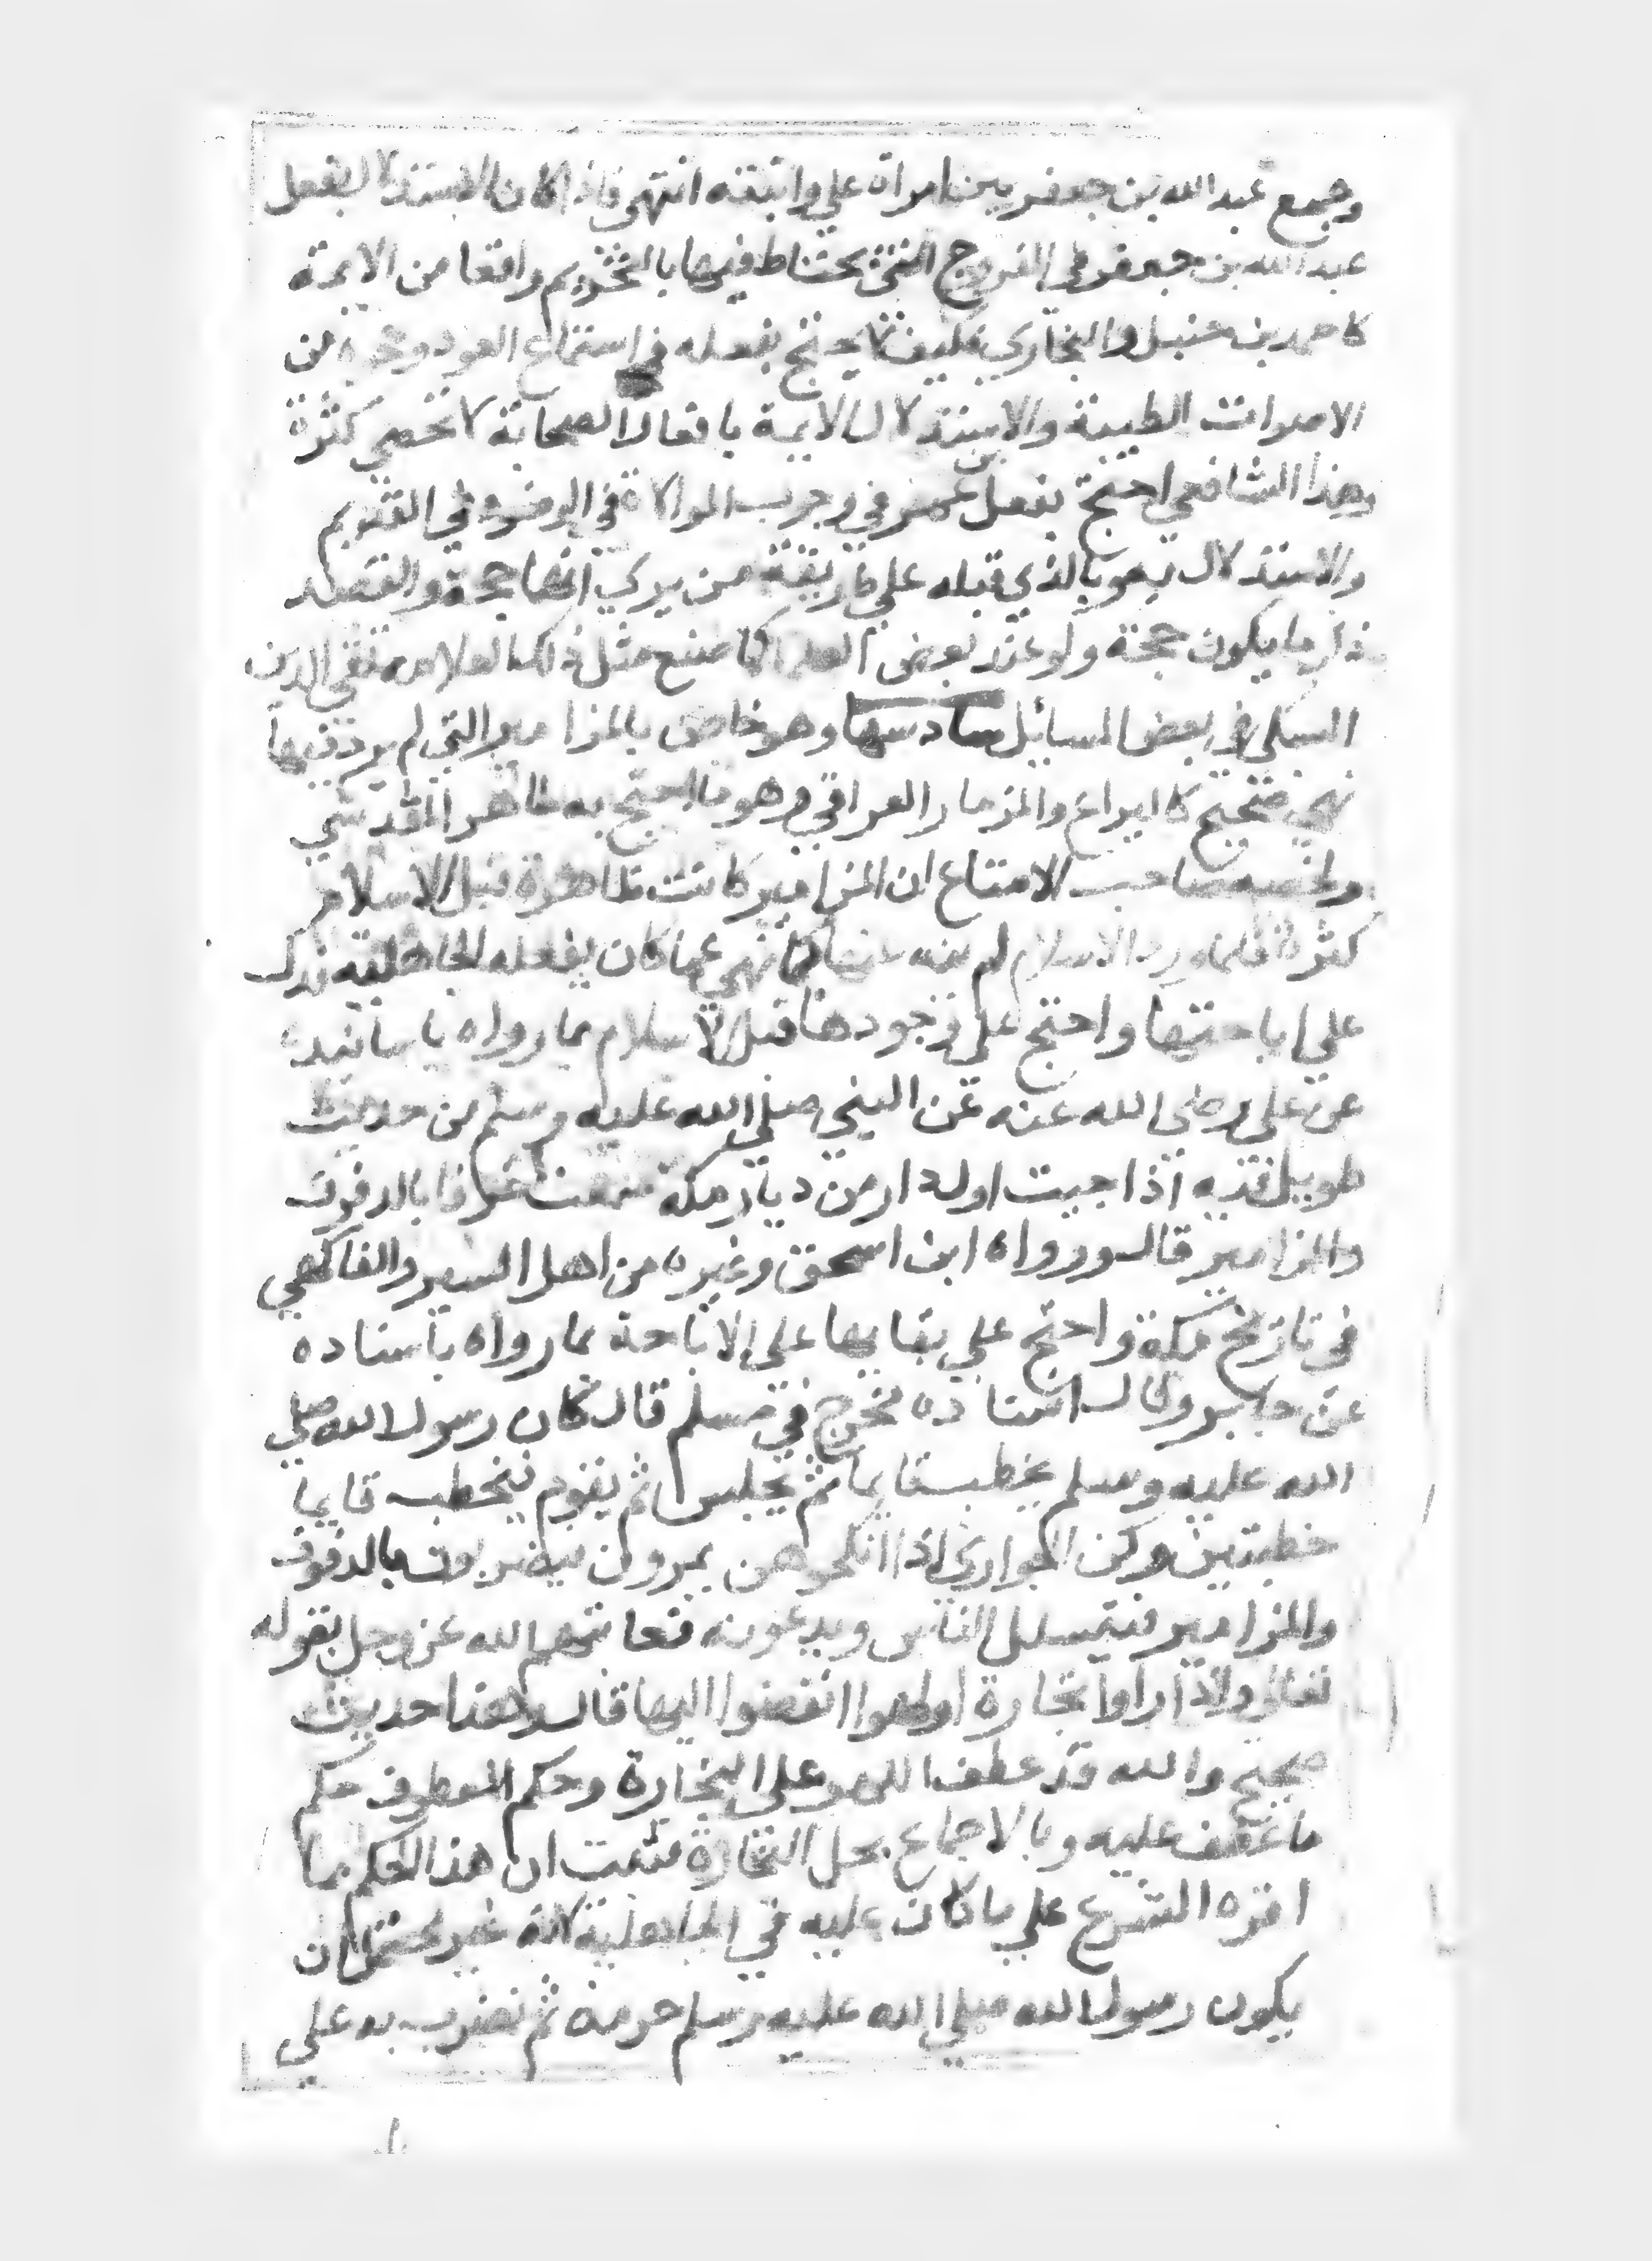 وجمع عبد الله بن جعفر بين امراة علي وابنته انتهى فاذا كان الاستدلال بفعل
عبد الله بن جعفر في الفروج التي يحتاط فيها بالتحريم واقعا من الايمة
كاحمد بن حنبل والبخاري فكيف لا يحتج بفعله في استماع العود وغيره من
الاصوات الطيبة والاستدلال الايمة بافعال الصحابة لا تحصى كثرة
وهذا الشافعي احتج بفعل عمر في وجوب الموالاة في الوضوء في القديم
والاستدلال بهو بالذي قبله علي طريقة من يري انها حجة والقصد
ذكر ما يكون حجة ولو عند بعض العلما كما صنع مثل ذلك العلامه تقي الدين
السبكي في بعض المسايل سادسها وهو خاص بالمزامير التي لم يرد فيها
نهي صحيح كاليراع والمزمار العراقي وهو ما احتج به طاهر المقدسي
ولخصه صاحب الامتاع ان المزامير كانت ظاهرة قبل الاسلام
كثرة فلما ورد الاسلام لم ينه عنها كما نهي عما كان يفعله الجاهلية فدل
علي اباحتها واحتج علي وجودها قبل الاسلام بما رواه باسانيده
عن علي رضي الله عنه عن النبي صلي الله عليه وسلم من حديث
طويل فيه اذا جيت اول دار من ديار مكة سمعت عزفا بالدفوف
والمزامير قال ورواه ابن اسحق وغيره من اهل السير والفاكهي
في تاريخ مكة واحتج علي بقايها علي الاباحة بما رواه باسناده
عن جابر وقال اسناده مخرج في مسلم قال كان رسول الله صلي
الله عليه وسلم يخطب قايما ثم يجلس ثم يقوم فيخطب قايما
خطبتين وكن الجواري اذا انكحوهن يمرون يضربون بالدفوف
والمزامير فيتسلل الناس ويدعونه فعاتبهم الله عز وجل بقوله
تعالي واذا راوا تجارة او لهوا انفضوا اليها قال وهذا حديث
صحيح والله قد عطف اللهو علي التجارة وحكم المعطوف حكم
ما عطف عليه وبالاجماع يحل التجارة فثبت ان هذا الحكم مما
اقره الشرع علي ما كان عليه في الجاهلية لانه غير محتمل ان
يكون رسول الله صلي الله عليه وسلم حرمه ثم يضرب به علي